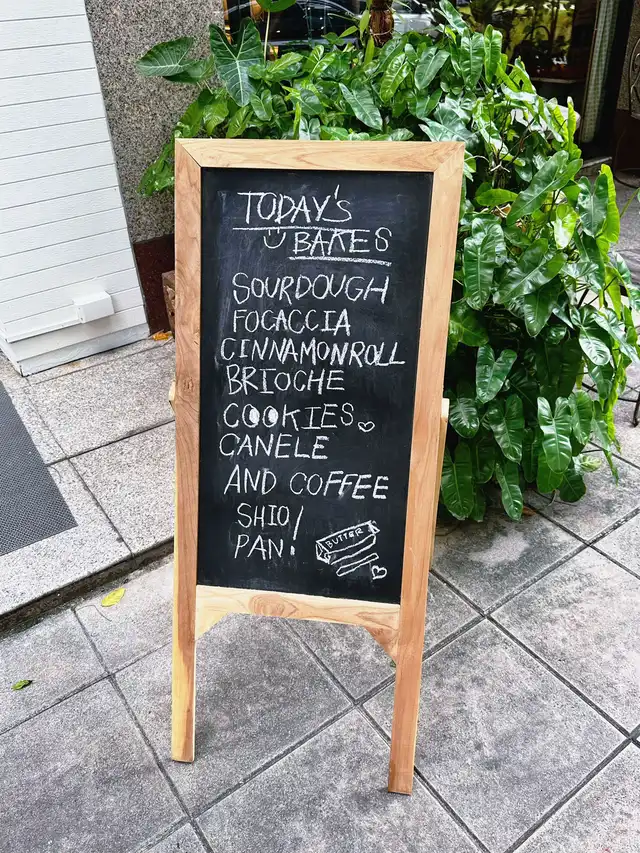 TODAY'S
BAKES
SOURDOUGH
FOCACCIA
CINNAMONROLL
BRIOCHE
COOKIES
CANELE
AND COFFEE
SHIO
PAN!
BUTTER